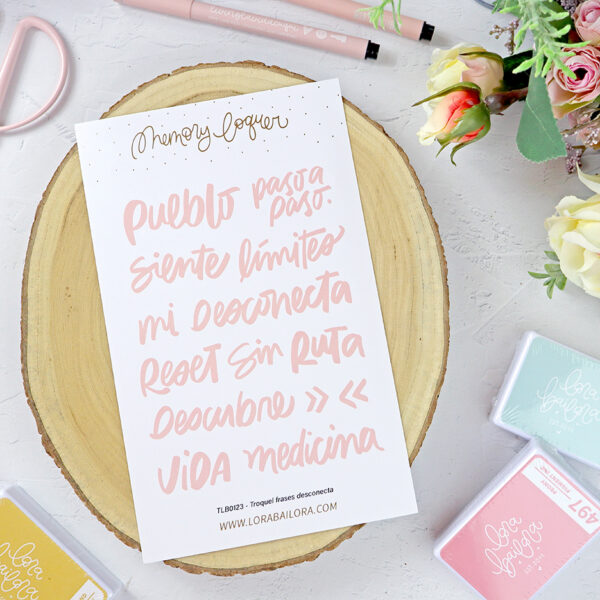 memory loquer
pueblo paso a paso.
siente límites
mi desconecta
reset sin ruta
descubre » «
vida medicina
TLB0123 - Troquel frases desconecta
WWW.LORABAILORA.COM
lora
bailora
lora
bailora
497
PEONY
lora
bailora